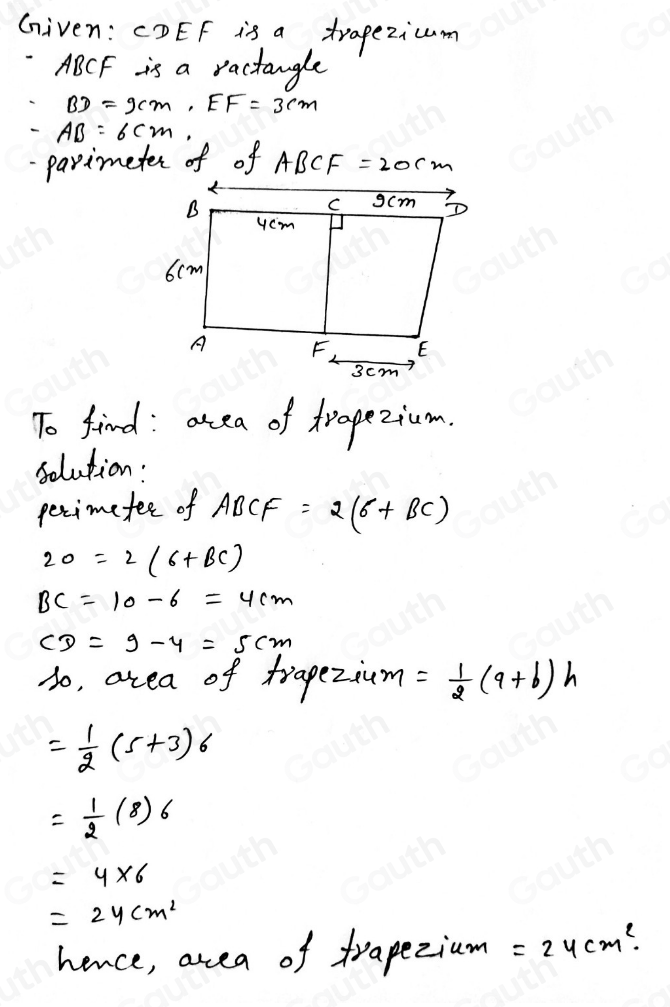 Given: CDEF is a trapezium
- ABCF is a ractangle
- BD = 9cm , EF = 3cm
- AB = 6cm .
- parimeter of of ABCF = 20cm
B C 9cm D
4cm
6cm
A F E
3cm
To find: area of trapezium.
solution:
perimeter of ABCF = 2(6+ BC)
20 = 2 (6+BC)
BC = 10 - 6 = 4cm
CD = 9 - 4 = 5cm
so, area of trapezium = 1/2 (a+b) h
= 1/2 (5+3) 6
= 1/2 (8) 6
= 4 × 6
= 24cm²
hence, area of trapezium = 24cm².